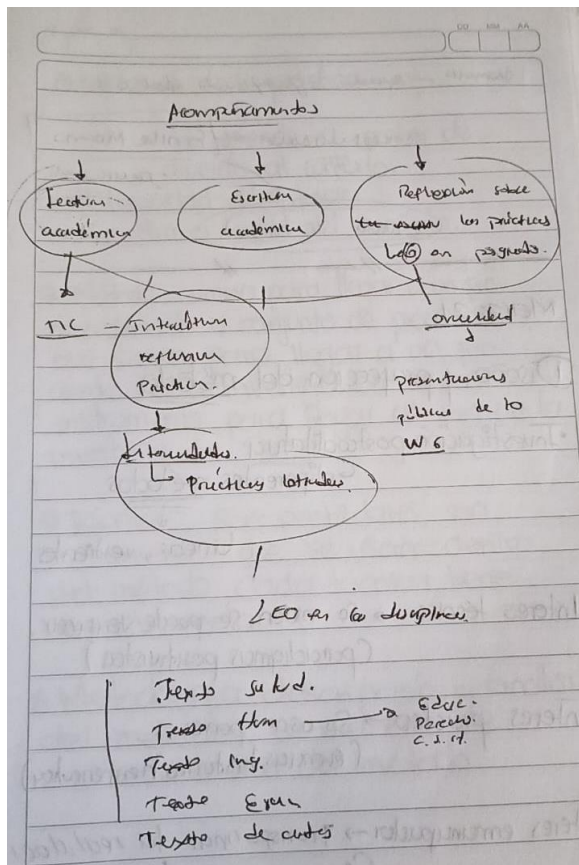 DD MM AA
Acompañamientos
Lectura
académica
Escritura
académica
Reflexión sobre
las prácticas
LEO en pregrado.
TIC – Interacción
reflexión
Práctica.
oralidad
presentaciones
públicas de lo
Prácticas letradas.
LEO en las disciplinas.
Texto salud.
Texto Hum
Educ.
Derecho.
Texto ing.
Texto
Texto de artes